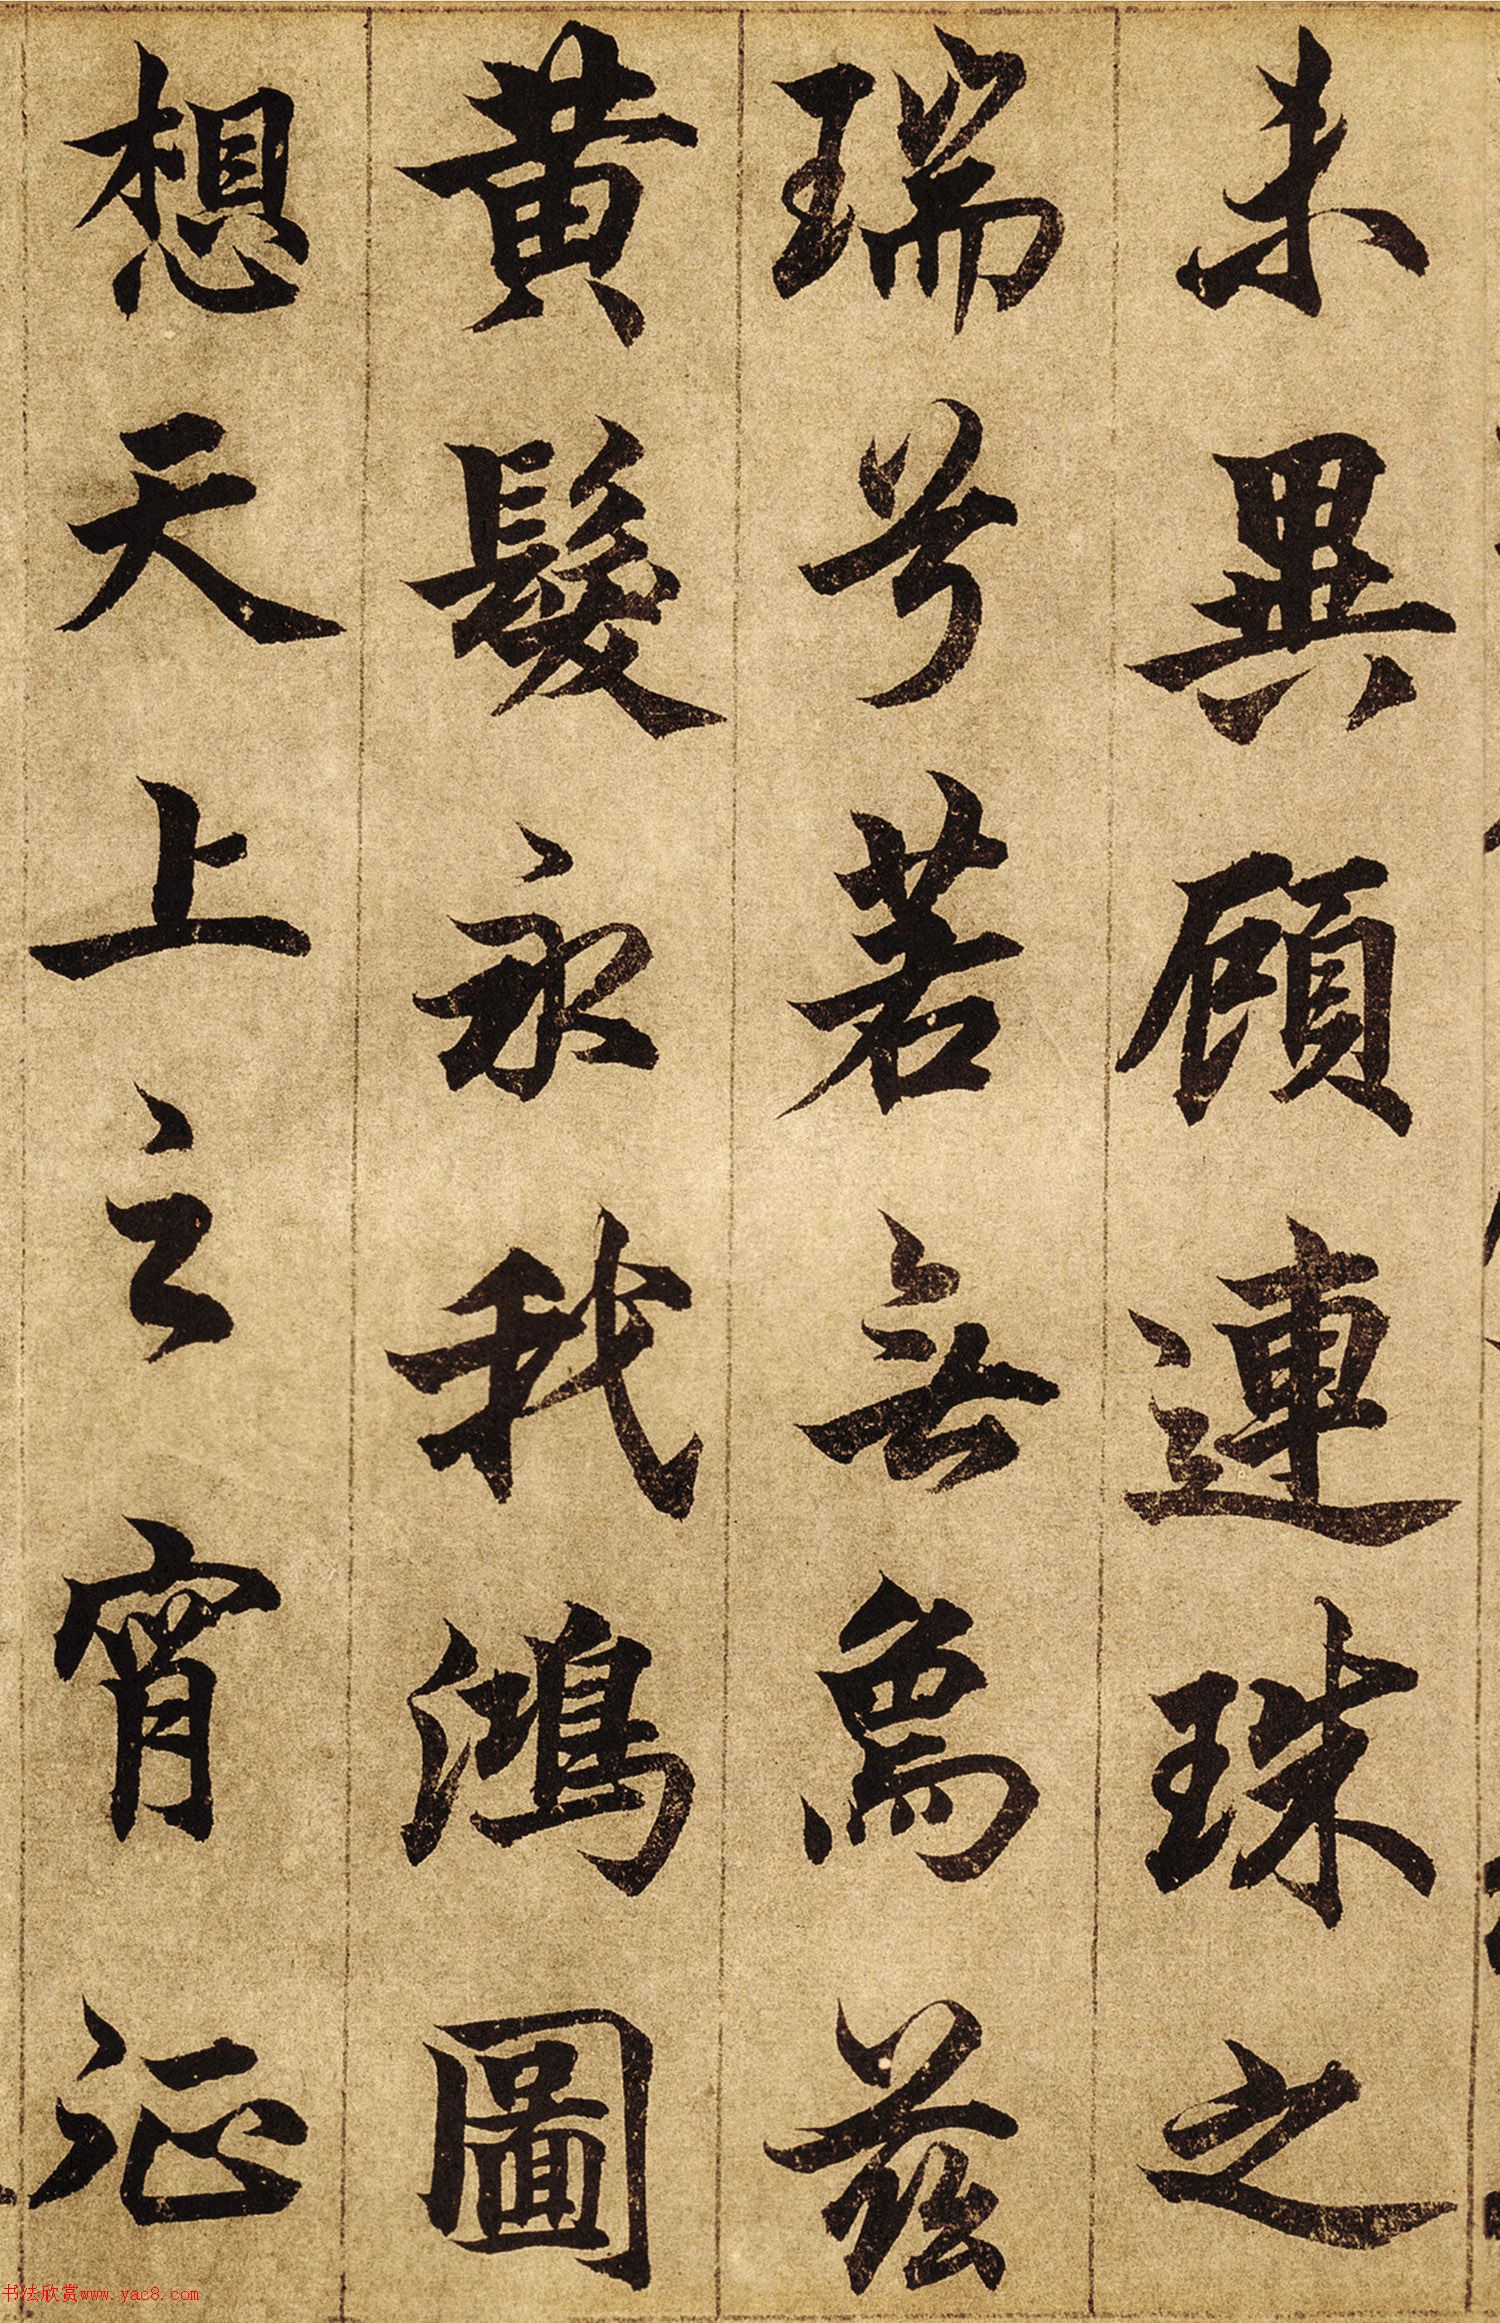 未異顧連珠之
瑞兮若無爲茲
黄髮永我鴻圖
想天上之宵征
书法欣赏www.yac8.com